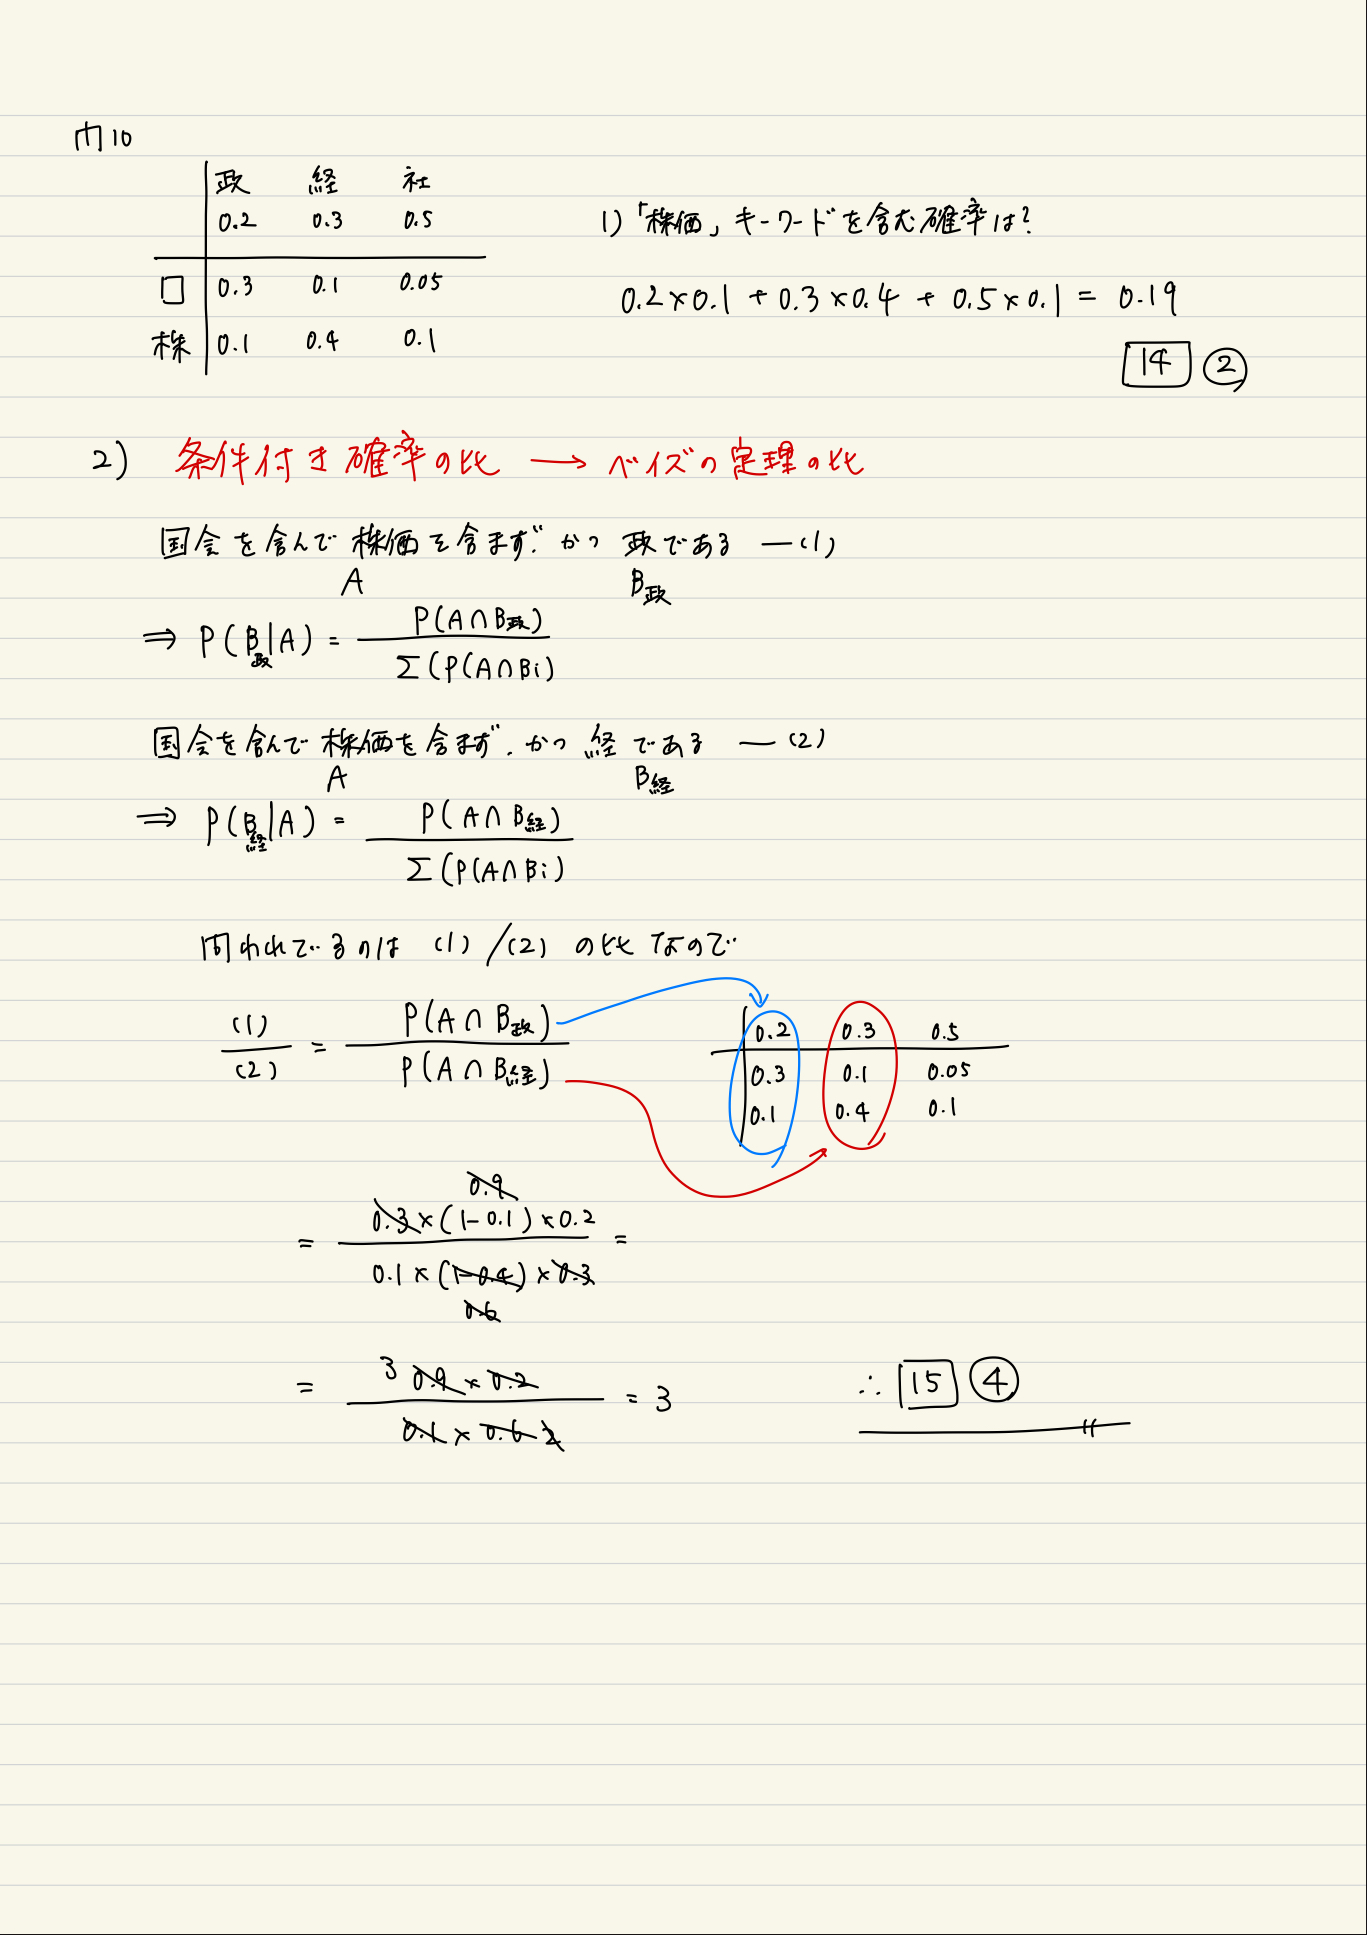 問10
政 経 社
0.2 0.3 0.5
口 0.3 0.1 0.05
株 0.1 0.4 0.1
1)「株価」キーワードを含む確率は?
0.2×0.1 + 0.3×0.4 + 0.5×0.1 = 0.19
14 ②
2) 条件付き確率の比 → ベイズの定理の比
国会を含んで株価を含まず.かつ 政である ―(1)
A B政
⇒ P(B政|A) = P(A∩B政) / Σ(P(A∩Bi)
国会を含んで株価を含まず.かつ 経である ―(2)
A B経
⇒ P(B経|A) = P(A∩B経) / Σ(P(A∩Bi)
問われているのは (1)/(2) の比なので
(1)/(2) = P(A∩B政) / P(A∩B経)
0.2 0.3 0.5
0.3 0.1 0.05
0.1 0.4 0.1
0.9
= 0.3×(1-0.1)×0.2 / 0.1×(1-0.4)×0.3 =
0.6
= 3 0.9×0.2 / 0.1×0.6 2 = 3
∴ 15 ④